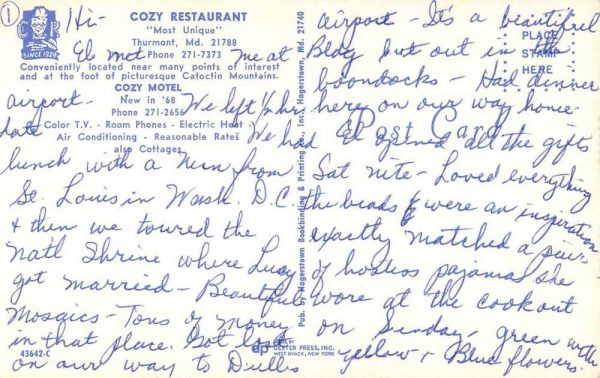 1
Hi-
COZY RESTAURANT
"Most Unique"
Thurmont, Md. 21788
Phone 271-7373
El met me at
Conveniently located near many points of interest
and at the foot of picturesque Catoctin Mountains.
COZY MOTEL
New in '68
Phone 271-2656
Color T.V. - Room Phones - Electric Heat -
Air Conditioning - Reasonable Rates
also Cottages
SINCE 1929
airport - We left 1/2 hr
late We had
lunch with a Nun from
St. Louis in Wash. D.C.
& then we toured the
Nat'l Shrine where Lucy
got married - Beautiful
Mosaics - Tons of money
in that place. Got lost
on our way to Dulles
43642-C
Pub. by Hagerstown Bookbinding & Printing Co., Inc., Hagerstown, Md. 21740
DEXTER PRESS, INC.
WEST NYACK, NEW YORK
PLACE
STAMP
HERE
Post Card
airport - It's a beautiful
Bldg but out in the
boondocks - Had dinner
here on our way home -
El opened all the gifts
Sat nite - Loved everything
the beads & were an inspiration
exactly matched a pair
of hostess pajamas she
wore at the cookout
on Sunday - green with
yellow & Blue flowers.